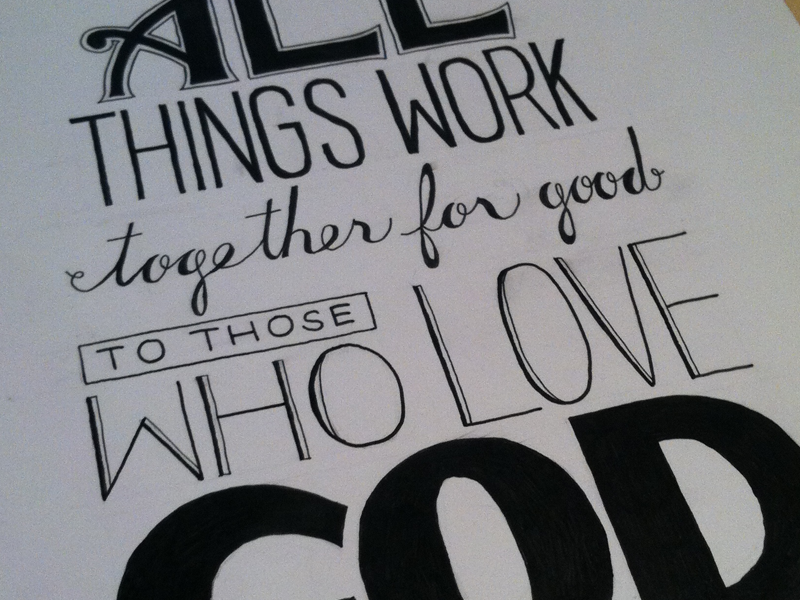 ALL
THINGS WORK
together for good
TO THOSE
WHO LOVE
GOD